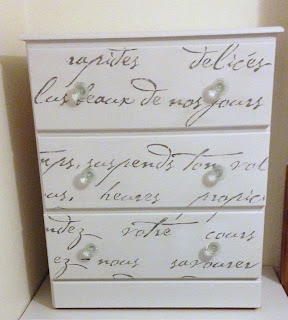 rapides délices
lus beaux de nos jours
mps, suspends ton vol
us, heures propic
ndez votre cours
ez-nous savourer